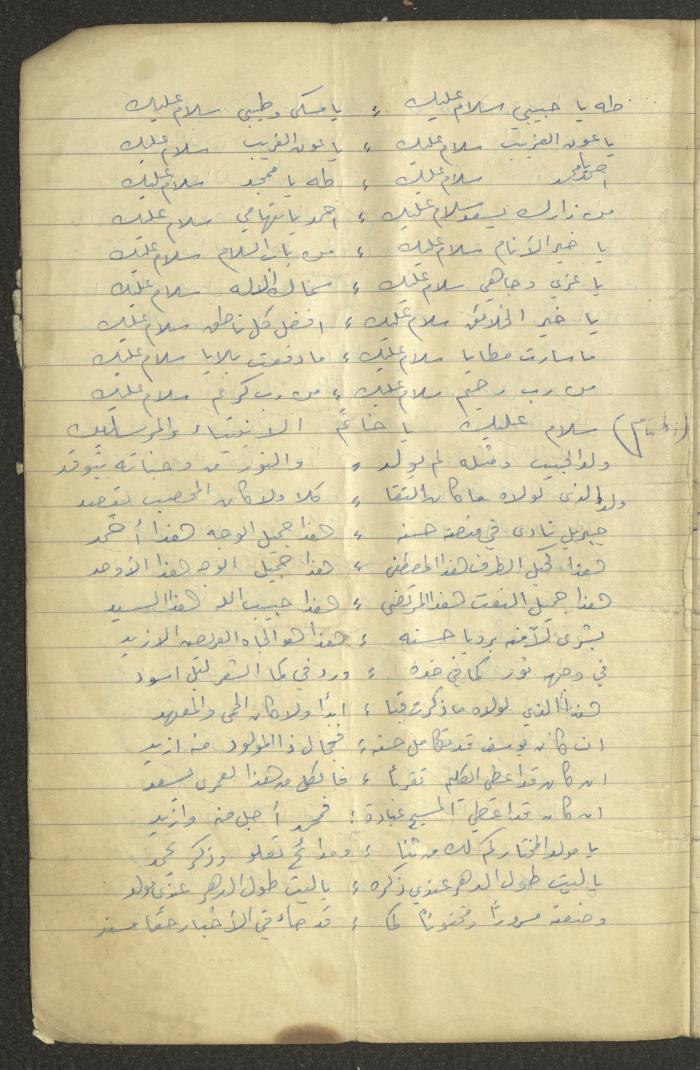 طه يا حبيبي سلام عليك ، يا مسكي وطيبي سلام عليك
يا عون الغريب سلام عليك ، يا عون الغريب سلام عليك
احمد يا محمد سلام عليك ، طه يا ممجد سلام عليك
من زارك يسعد سلام عليك ، احمد يا تهامي سلام عليك
يا خير الأنام سلام عليك ، من باب السلام سلام عليك
يا عزي وجاهي سلام عليك ، سلام عليك
يا خير الخلائق سلام عليك ، افضل كل ناطق سلام عليك
ما سارت مطايا سلام عليك ، ما دفعت بلايا سلام عليك
من رب رحيم سلام عليك ، من رب كريم سلام عليك
سلام عليك يا خاتم الانبياء والمرسلين
ولد الحبيب ومثله لم يولد ، والنور من وجناته يتوقد
ولد الذي لولاه ما كان النقا ، كلا ولا كان المحصب يقصد
جبريل نادى في منصة حسنه ، هذا جميل الوجه هذا أحمد
هذا كحيل الطرف هذا المصطفى ، هذا جميل الوجه هذا الأوحد
هذا جميل النعت هذا المرتضى ، هذا حبيب الله هذا السيد
بشرى لآمنة برويا حسنه ، هذا هو الجاه العريض الازيد
في وجهه نور كما في خده ، ورد في كما الشعر ليل اسود
هذا الذي لولاه ما ذكرت قبا ، ابدأ ولا كان الحمى والمعهد
ان كان يوسف قد تكامل حسنه ، فجمال ذا المولود منه ازيد
ان كان قد اعطي الكليم تقرباً ، فالكل من هذا لعمري يسعد
ان كان قد اعطي المسيح عبادة ، فمحمد أجل منه وازيد
يا مولد المختار كم لك من ثنا ، ومدائح تعلو وذكر يحمد
يا ليت طول الدهر عندي ذكره ، يا ليت طول الدهر عندي مولد
وضعته مسروراً ومختونا كما ، قد جاء في الأخبار حقا مسند